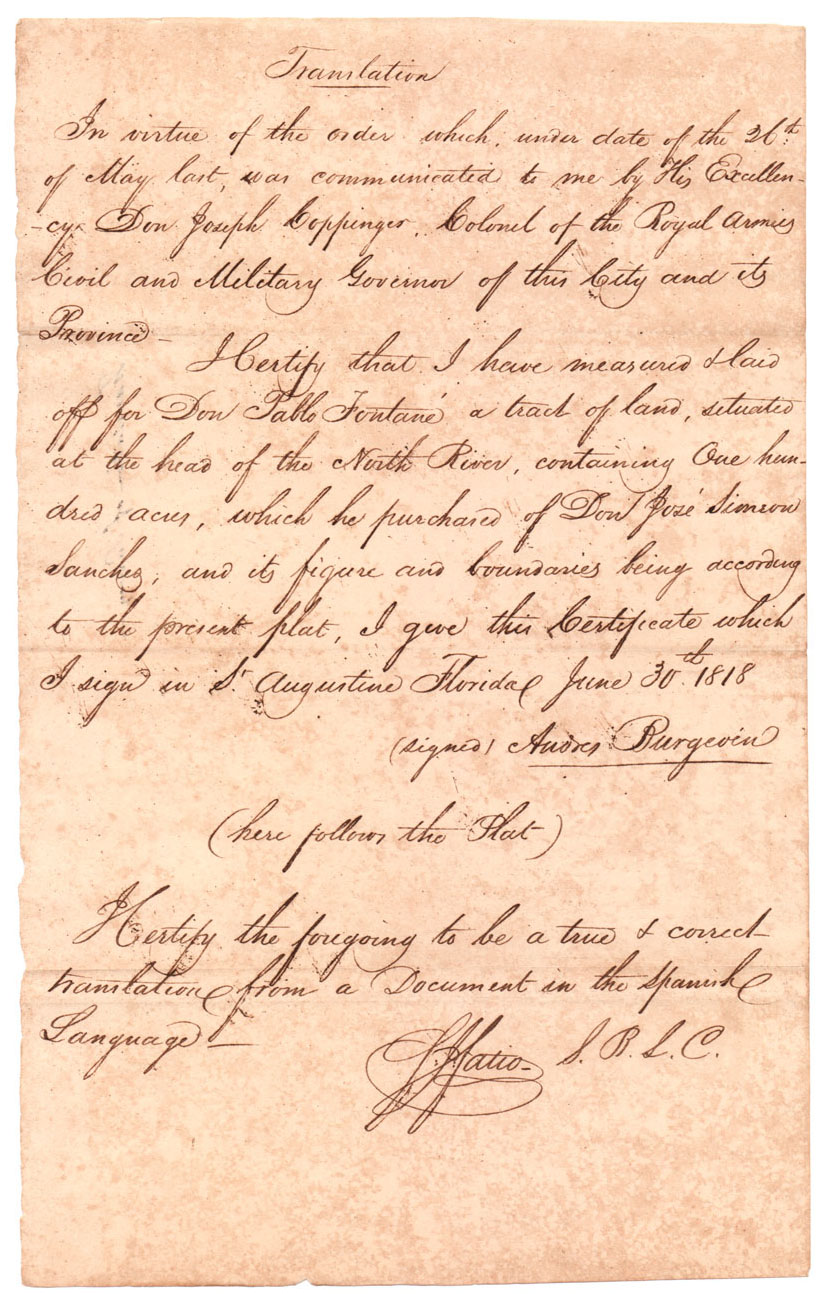 Translation
In virtue of the order which, under date of the 26th
of May last, was communicated to me by His Excellen-
-cy Don Joseph Coppinger, Colonel of the Royal Armies
Civil and Military Governor of this City and its
Province—
I Certify that I have measured & laid
off for Don Pablo Fontané a tract of land, situated
at the head of the North River, containing One hun-
dred acres, which he purchased of Don José Simeon
Sanchez, and its figure and boundaries being according
to the present plat, I give this Certificate which
I sign in St Augustine Florida June 30th 1818
(signed) Andres Burgevin
(here follows the Plat)
I Certify the foregoing to be a true & correct
translation from a Document in the Spanish
Language—
S. B. L. C.